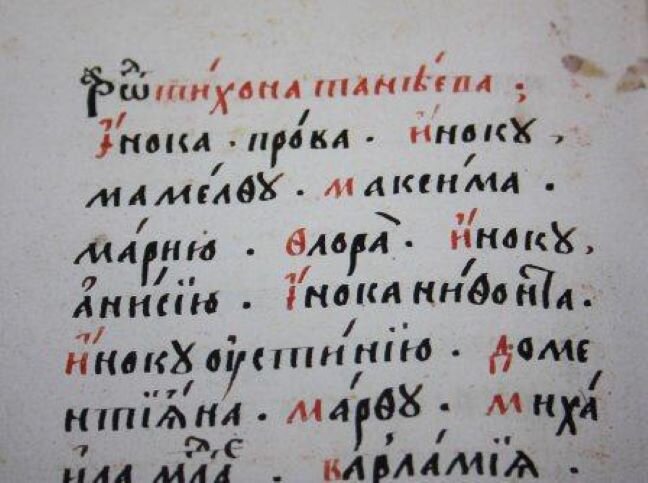 Рѡⷣ тихона танѣева ;
І҆нока · про́ва · И҆нокꙋ ,
маме́лѳꙋ · максима ·
ма́рию · Ѳлора̀ · И҆нокꙋ ,
а҆нисїю · І҆нока нифонта ·
И҆нокꙋ оустинїю · доме
нтїѧна · ма́рѳꙋ · миха́
ила млⷣа · варла́мїѧ ·